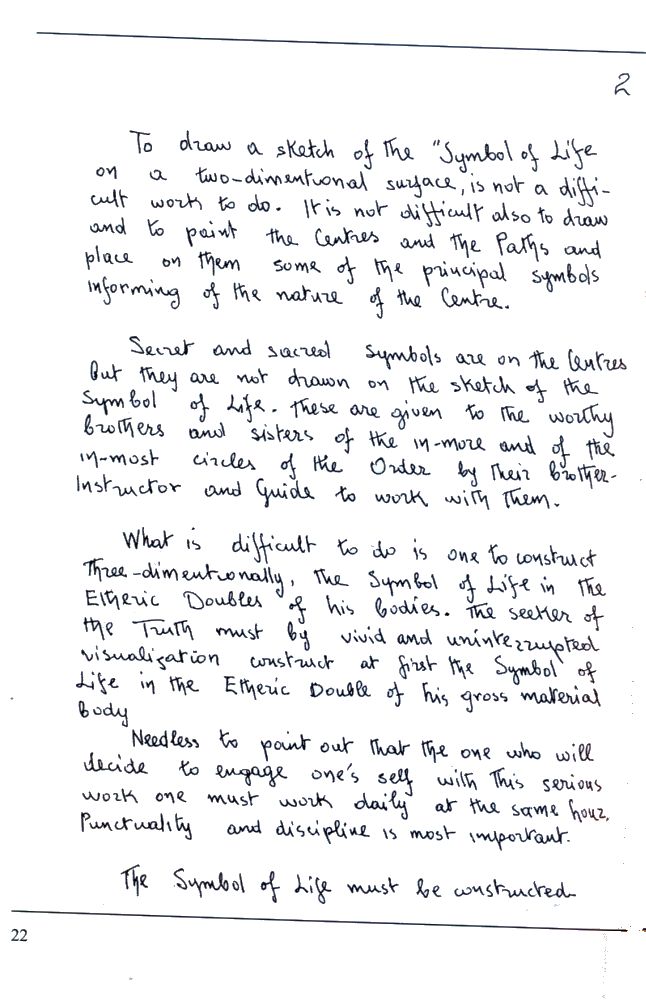 2
To draw a sketch of the "Symbol of Life
on a two-dimentional surface, is not a diffi-
cult work to do. It is not difficult also to draw
and to paint the Centres and the Paths and
place on them some of the principal symbols
informing of the nature of the Centre.
Secret and sacred symbols are on the Centres
But they are not drawn on the sketch of the
Symbol of Life. These are given to the worthy
brothers and sisters of the in-more and of the
in-most circles of the Order by their brother-
Instructor and Guide to work with them.
What is difficult to do is one to construct
Three-dimentionally, the Symbol of Life in the
Etheric Doubles of his bodies. The seeker of
the Truth must by vivid and uninterrupted
visualization construct at first the Symbol of
Life in the Etheric Double of his gross material
body
Needless to point out that the one who will
decide to engage one's self with this serious
work one must work daily at the same hour.
Punctuality and discipline is most important.
The Symbol of Life must be constructed
22